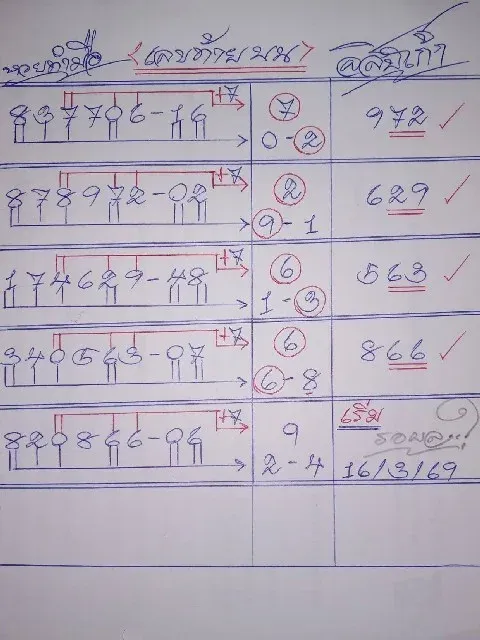 หวยทำมือ <เลขท้ายบน>
837706-16 +7 7 972 ✓
0-2
878972-02 +7 2 629 ✓
9-1
174629-48 +7 6 563 ✓
1-3
340563-07 +7 6 866 ✓
6-8
820866-06 +7 9 เริ่ม
รอผล...!
2-4 16/3/69